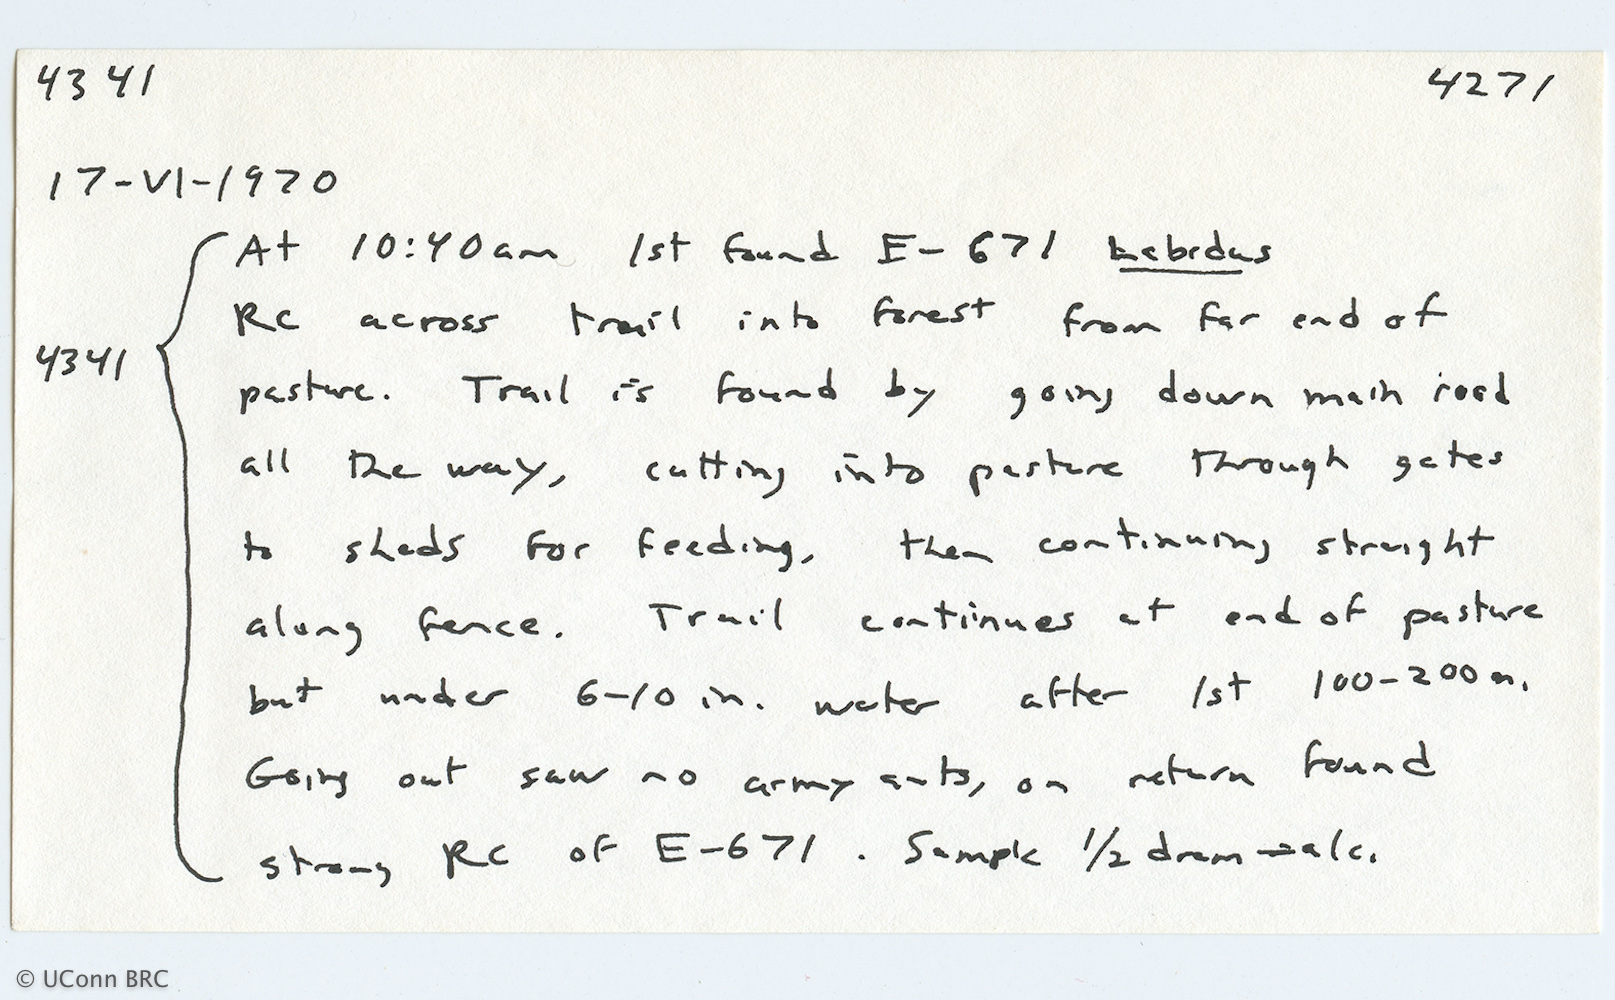 4341 4271
17-VI-1970
At 10:40am 1st found E-671
RC across trail into forest from far end of
4341
pasture. Trail is found by going down main road
all the way, cutting into pasture through gates
to sheds for feeding, then continuing straight
along fence. Trail continues at end of pasture
but under 6-10 in. water after 1st 100-200m.
Going out saw no army ants, on return found
strong RC of E-671. Sample 1/2 dram→alc.
© UConn BRC